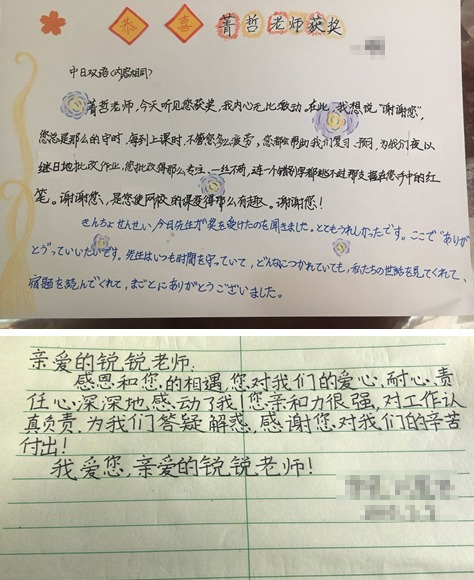 恭喜 菁哲老师获奖
中日双语(内容相同)
菁哲老师,今天听见您获奖,我内心无比激动。在此,我想说“谢谢您”,
您总是那么的守时,每到上课时,不管您多么疲劳,您都帮助我们复习、预习,为我们夜以
继日地批改作业,您批改得那么专注、一丝不苟,连一个错别字都逃不过那支握在您手中的红
笔。谢谢您,是您使网校的课变得那么有趣。谢谢您!
きんちょせんせい,今日先任が奖を受けたのを聞きました。とてもうれしかったです。ここで“ありが
とう”っていいたいです。先任はいつも時間を守っていて,どんなにつかれていても,私たちの世話を見てくれて,
宿題を読んでくれて,まごとにありがとうございました。
亲爱的锐锐老师:
感恩和您的相遇,您对我们的爱心、耐心、责
任心深深地感动了我!您亲和力很强,对工作认
真负责,为我们答疑解惑,感谢您对我们的辛苦
付出!
我爱您,亲爱的锐锐老师!